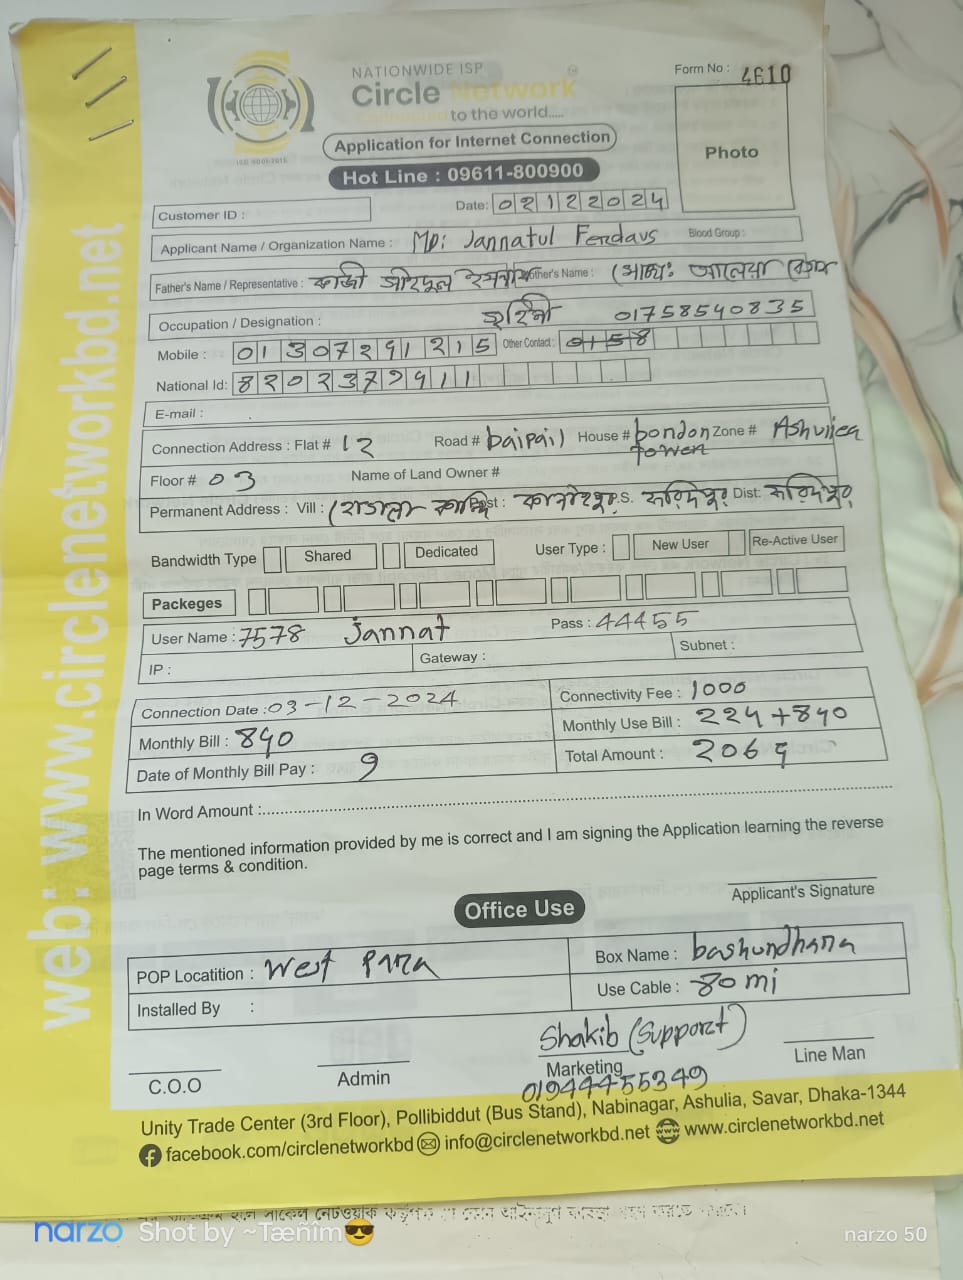 NATIONWIDE ISP
Circle Network
to the world.....
ISO 9001:2015
Form No : 4610
Application for Internet Connection
Hot Line : 09611-800900
Photo
Date: 02122024
Customer ID :
Applicant Name / Organization Name : MD: Jannatul Ferdaus Blood Group :
Father's Name / Representative : কাজী Mother's Name :
Occupation / Designation : গৃহিনী 01758540835
Mobile : 01307291215 Other Contact : 0158
National Id: 8202379911
E-mail :
Connection Address : Flat # 12 Road # baipail House # bondon tower Zone # Ashuliea
Floor # 03 Name of Land Owner #
Permanent Address : Vill : Post : P.S. ফরিদপুর Dist: ফরিদপুর
Bandwidth Type Shared Dedicated User Type : New User Re-Active User
Packeges
User Name : 7578 Jannat Pass : 44455
IP : Gateway : Subnet :
Connection Date : 03-12-2024 Connectivity Fee : 1000
Monthly Bill : 840 Monthly Use Bill : 224+840
Date of Monthly Bill Pay : 9 Total Amount : 2064
In Word Amount :
The mentioned information provided by me is correct and I am signing the Application learning the reverse
page terms & condition.
Applicant's Signature
Office Use
POP Locatition : West Para Box Name : bashundhara
Installed By : Use Cable : 80 mi
Shakib (Support)
C.O.O Admin Marketing Line Man
01944455349
Unity Trade Center (3rd Floor), Pollibiddut (Bus Stand), Nabinagar, Ashulia, Savar, Dhaka-1344
facebook.com/circlenetworkbd info@circlenetworkbd.net www.circlenetworkbd.net
web: www.circlenetworkbd.net
narzo Shot by ~Tæñîm😎 narzo 50